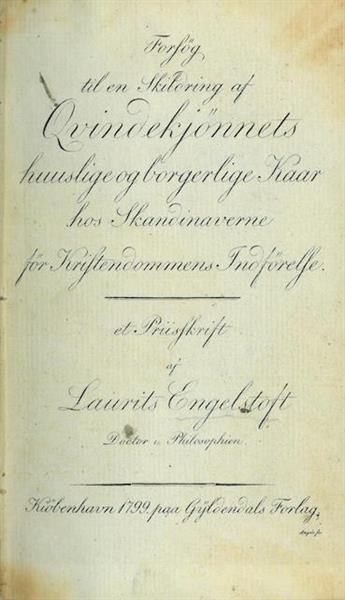 Forsøg
til en Skildring af
Qvindekjönnets
huuslige og borgerlige Kaar
hos Skandinaverne
för Kristendommens Indförelse.
et Priisskrift
af
Laurits Engelstoft
Doctor i Philosophien.
Kiöbenhavn 1799. paa Gÿldendals Forlag.